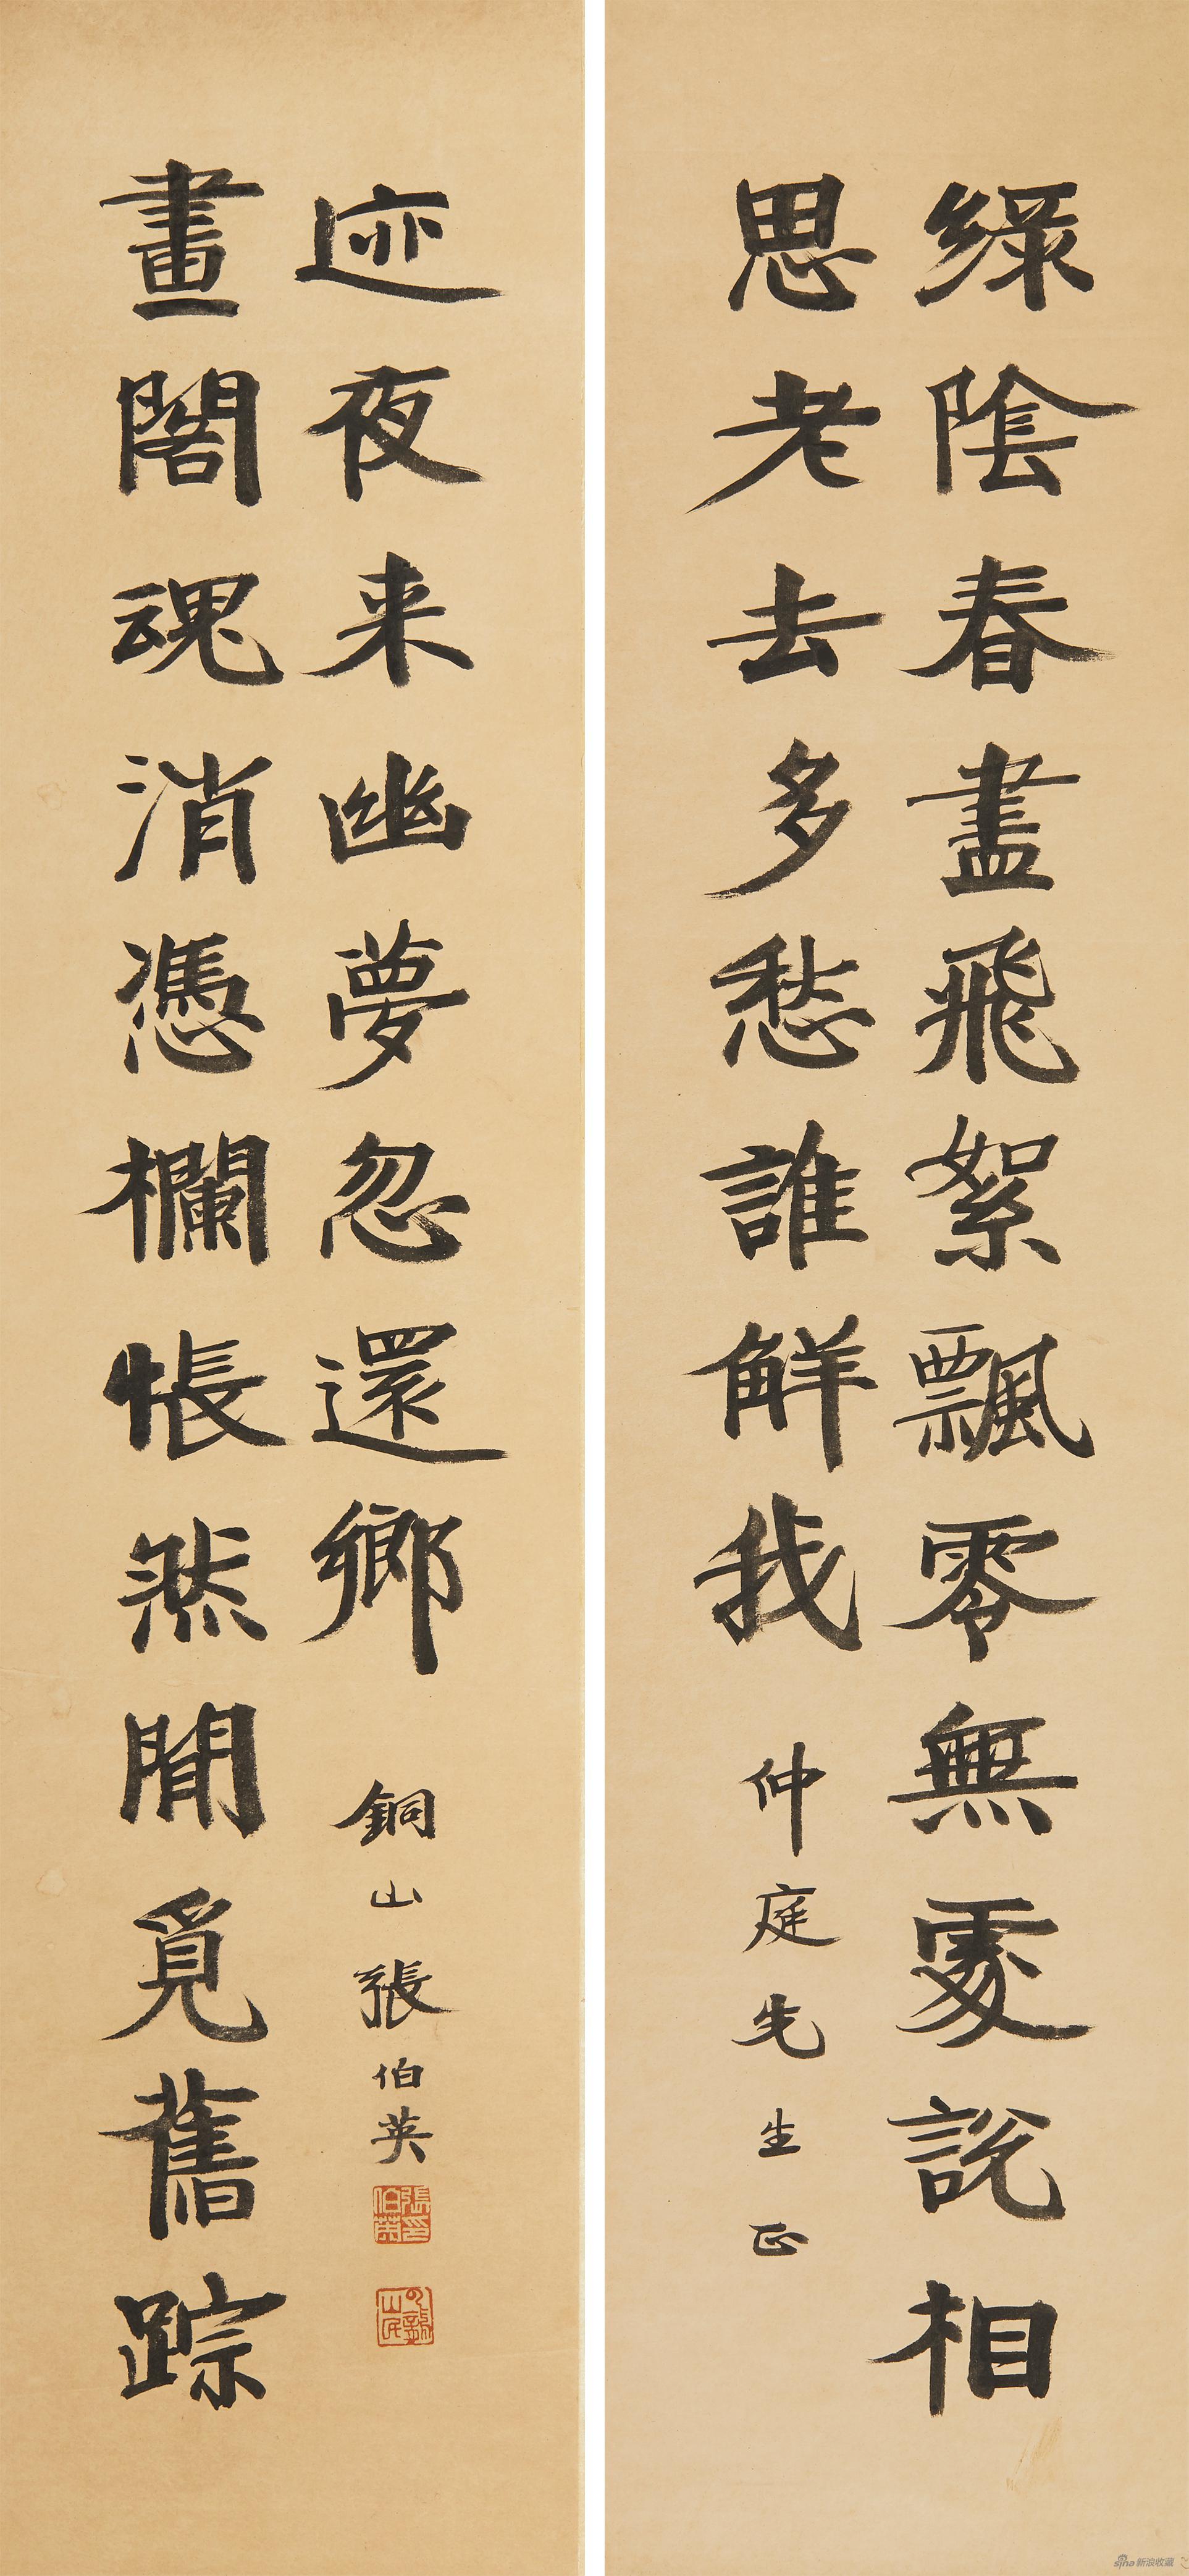 綠陰春盡飛絮飄零無處說相
思老去多愁誰解我
仲庭先生正
畫閣魂消憑欄悵然閒覓舊踪
迹夜来幽夢忽還鄉
銅山張伯英
張伯英印
sina新浪收藏